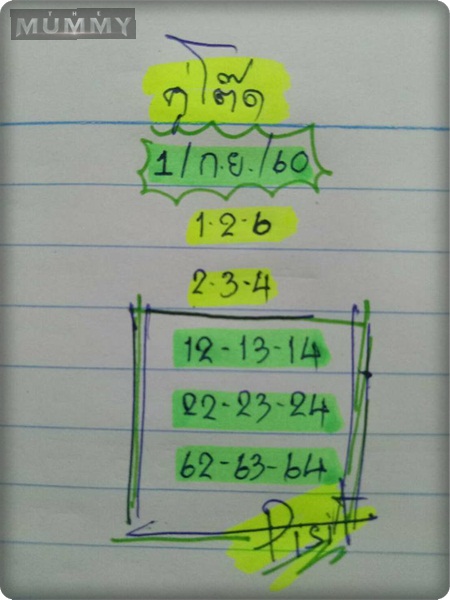 THE
MUMMY
กู๋โต๊ด
1/ก.ย./60
1-2-6
2-3-4
12-13-14
22-23-24
62-63-64
Pisit